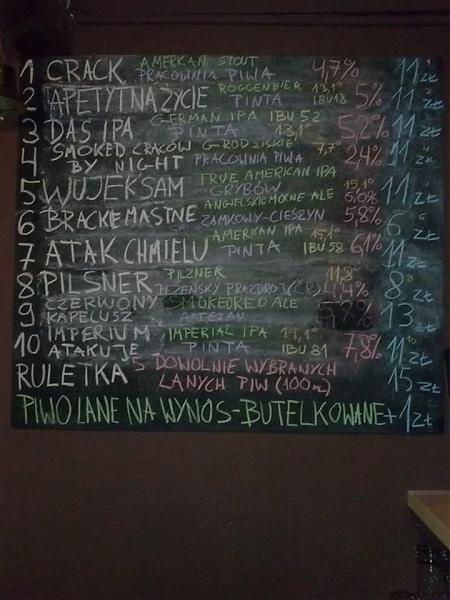 1 CRACK, AMERICAN STOUT PRACOWNIA PIWA 4,7% 11 ZŁ
2 APETYT NA ŻYCIE ROGGENBIER 13,1° PINTA IBU 18 5% 11 ZŁ
3 DAS IPA GERMAN IPA IBU 52 PINTA 13,1° 5,2% 11 ZŁ
4 SMOKED CRACOW BY NIGHT GRODZISKIE 7,7° PRACOWNIA PIWA 2,4% 11 ZŁ
5 WUJEK SAM TRUE AMERICAN IPA GRYBÓW 15,1° 6,0% 11 ZŁ
6 BRACKE MASTNE ANGIELSKIE MOCNE ALE ZAMKOWY-CIESZYN 5,8% 6 ZŁ
7 ATAK CHMIELU AMERICAN IPA 15,1° PINTA IBU 58 6,1% 11 ZŁ
8 PILSNER PILZNER 11,8° PLZEŇSKÝ PRAZDROJ (CR) 4,4% 8 ZŁ
9 CZERWONY KAPELUSZ SMOKED RED ALE ARTEZAN 13 ZŁ
10 IMPERIUM ATAKUJE IMPERIAL IPA 19,1° PINTA IBU 81 7,8% 11 ZŁ
RULETKA 5 DOWOLNIE WYBRANYCH LANYCH PIW (100 mL) 15 ZŁ
PIWO LANE NA WYNOS - BUTELKOWANE +1 ZŁ